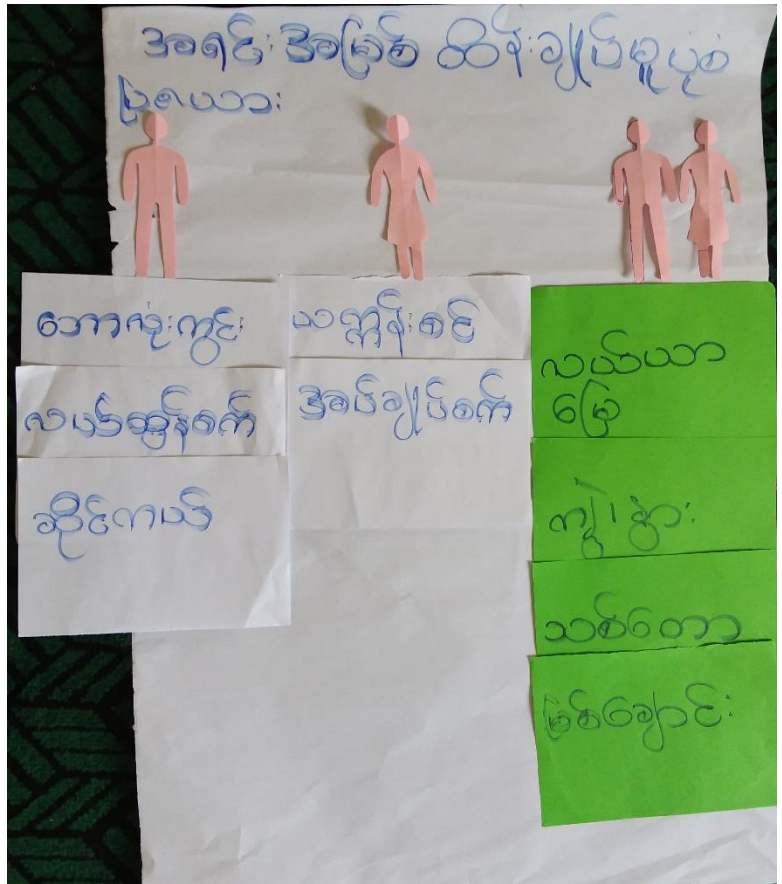 အရင်းအမြစ် ထိန်းချုပ်မှုပုံစံ
ပြဇယား
ဘောလုံးကွင်း
လယ်ထွန်စက်
ဆိုင်ကယ်
ယက္ကန်းစင်
အပ်ချုပ်စက်
လယ်ယာ
မြေ
ကျွဲ၊ နွား
သစ်တော
မြစ်ချောင်း